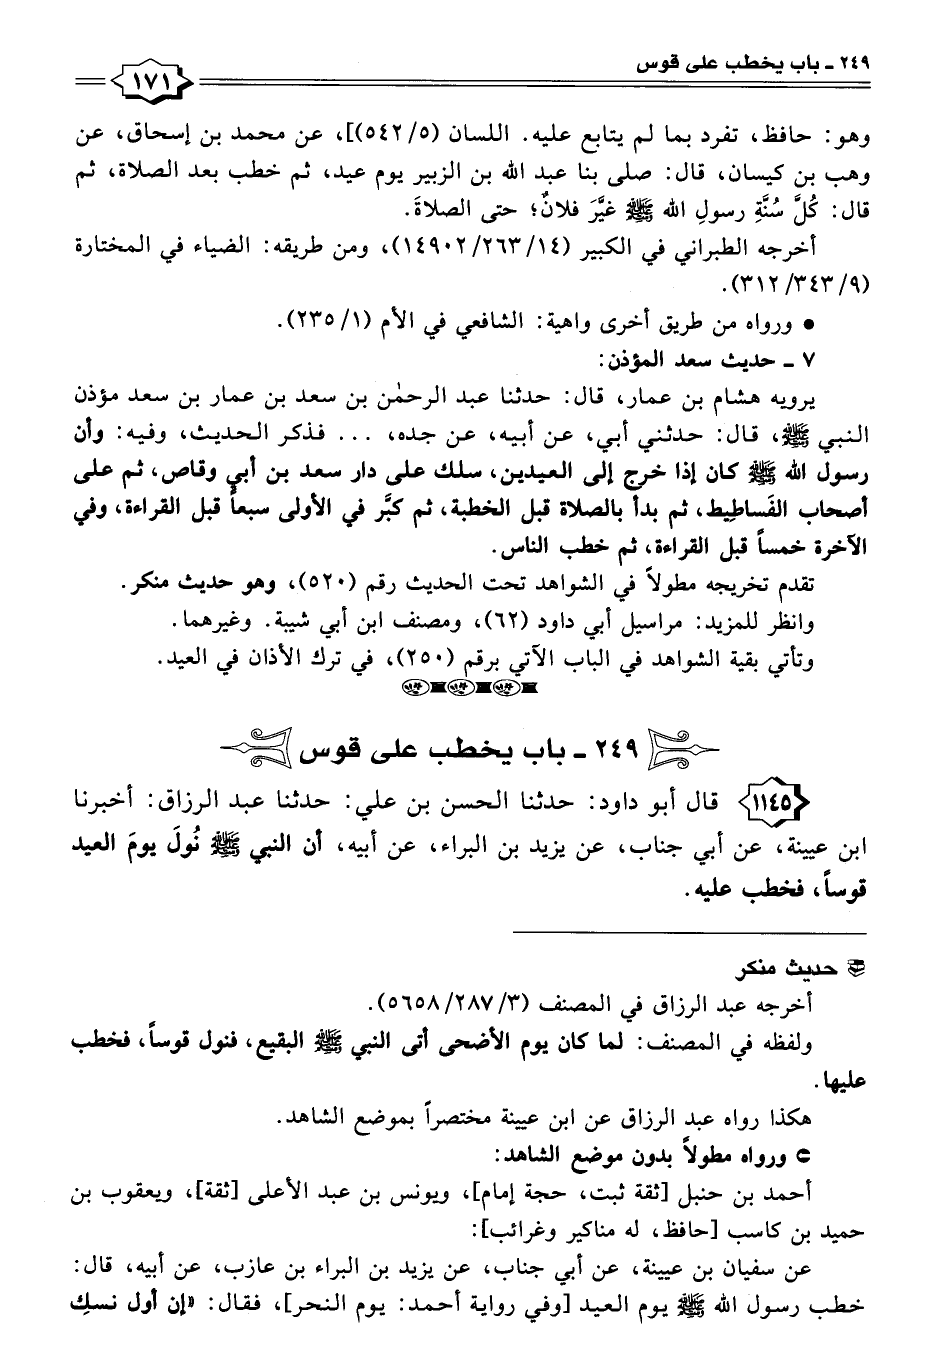 ٢٤٩ - باب يخطب على قوس
١٧١
وهو: حافظ، تفرد بما لم يتابع عليه. اللسان (٥٤٢/٥)]، عن محمد بن إسحاق، عن
وهب بن كيسان، قال: صلى بنا عبد الله بن الزبير يوم عيد، ثم خطب بعد الصلاة، ثم
قال: كُلَّ سُنَّةِ رسولِ الله ﷺ غيَّرَ فلانٌ؛ حتى الصلاةَ.
أخرجه الطبراني في الكبير (١٤٩٠٢/٢٦٣/١٤)، ومن طريقه: الضياء في المختارة
(٣١٢/٣٤٣/٩).
• ورواه من طريق أخرى واهية: الشافعي في الأم (٢٣٥/١).
٧ - حديث سعد المؤذن:
يرويه هشام بن عمار، قال: حدثنا عبد الرحمٰن بن سعد بن عمار بن سعد مؤذن
النبي ﷺ، قال: حدثني أبي، عن أبيه، عن جده، ... فذكر الحديث، وفيه: وأن
رسول الله ﷺ كان إذا خرج إلى العيدين، سلك على دار سعد بن أبي وقاص، ثم على
أصحاب الفَساطِيط، ثم بدأ بالصلاة قبل الخطبة، ثم كبَّر في الأولى سبعاً قبل القراءة، وفي
الآخرة خمساً قبل القراءة، ثم خطب الناس.
تقدم تخريجه مطولاً في الشواهد تحت الحديث رقم (٥٢٠)، وهو حديث منكر.
وانظر للمزيد: مراسيل أبي داود (٦٢)، ومصنف ابن أبي شيبة. وغيرهما.
وتأتي بقية الشواهد في الباب الآتي برقم (٢٥٠)، في ترك الأذان في العيد.
٢٤٩ - باب يخطب على قوس
١١٤٥ قال أبو داود: حدثنا الحسن بن علي: حدثنا عبد الرزاق: أخبرنا
ابن عيينة، عن أبي جناب، عن يزيد بن البراء، عن أبيه، أن النبي ﷺ نُولَ يومَ العيد
قوساً، فخطب عليه.
حديث منكر
أخرجه عبد الرزاق في المصنف (٥٦٥٨/٢٨٧/٣).
ولفظه في المصنف: لما كان يوم الأضحى أتى النبي ﷺ البقيع، فنول قوساً، فخطب
عليها.
هكذا رواه عبد الرزاق عن ابن عيينة مختصراً بموضع الشاهد.
ورواه مطولاً بدون موضع الشاهد:
أحمد بن حنبل [ثقة ثبت، حجة إمام]، ويونس بن عبد الأعلى [ثقة]، ويعقوب بن
حميد بن كاسب [حافظ، له مناكير وغرائب]:
عن سفيان بن عيينة، عن أبي جناب، عن يزيد بن البراء بن عازب، عن أبيه، قال:
خطب رسول الله ﷺ يوم العيد [وفي رواية أحمد: يوم النحر]، فقال: «إن أول نسك